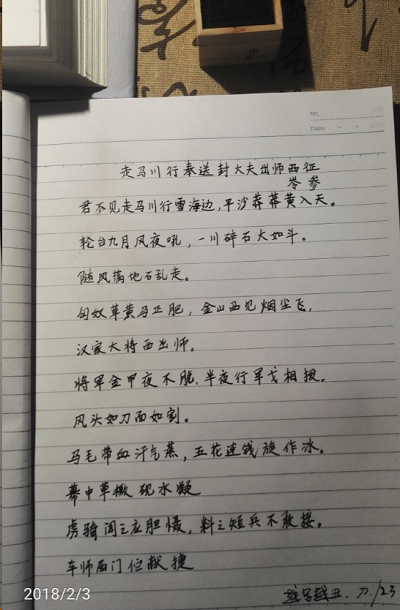 NO.
Date
走马川行奉送封大夫出师西征
岑参
君不见走马川行雪海边,平沙莽莽黄入天。
轮台九月风夜吼,一川碎石大如斗。
随风满地石乱走。
匈奴草黄马正肥,金山西见烟尘飞,
汉家大将西出师。
将军金甲夜不脱,半夜行军戈相拨。
风头如刀面如割。
马毛带血汗气蒸,五花连钱旋作冰。
幕中草檄砚水凝
虏骑闻之应胆慑,料之短兵不敢接。
车师西门伫献捷
2018/2/3